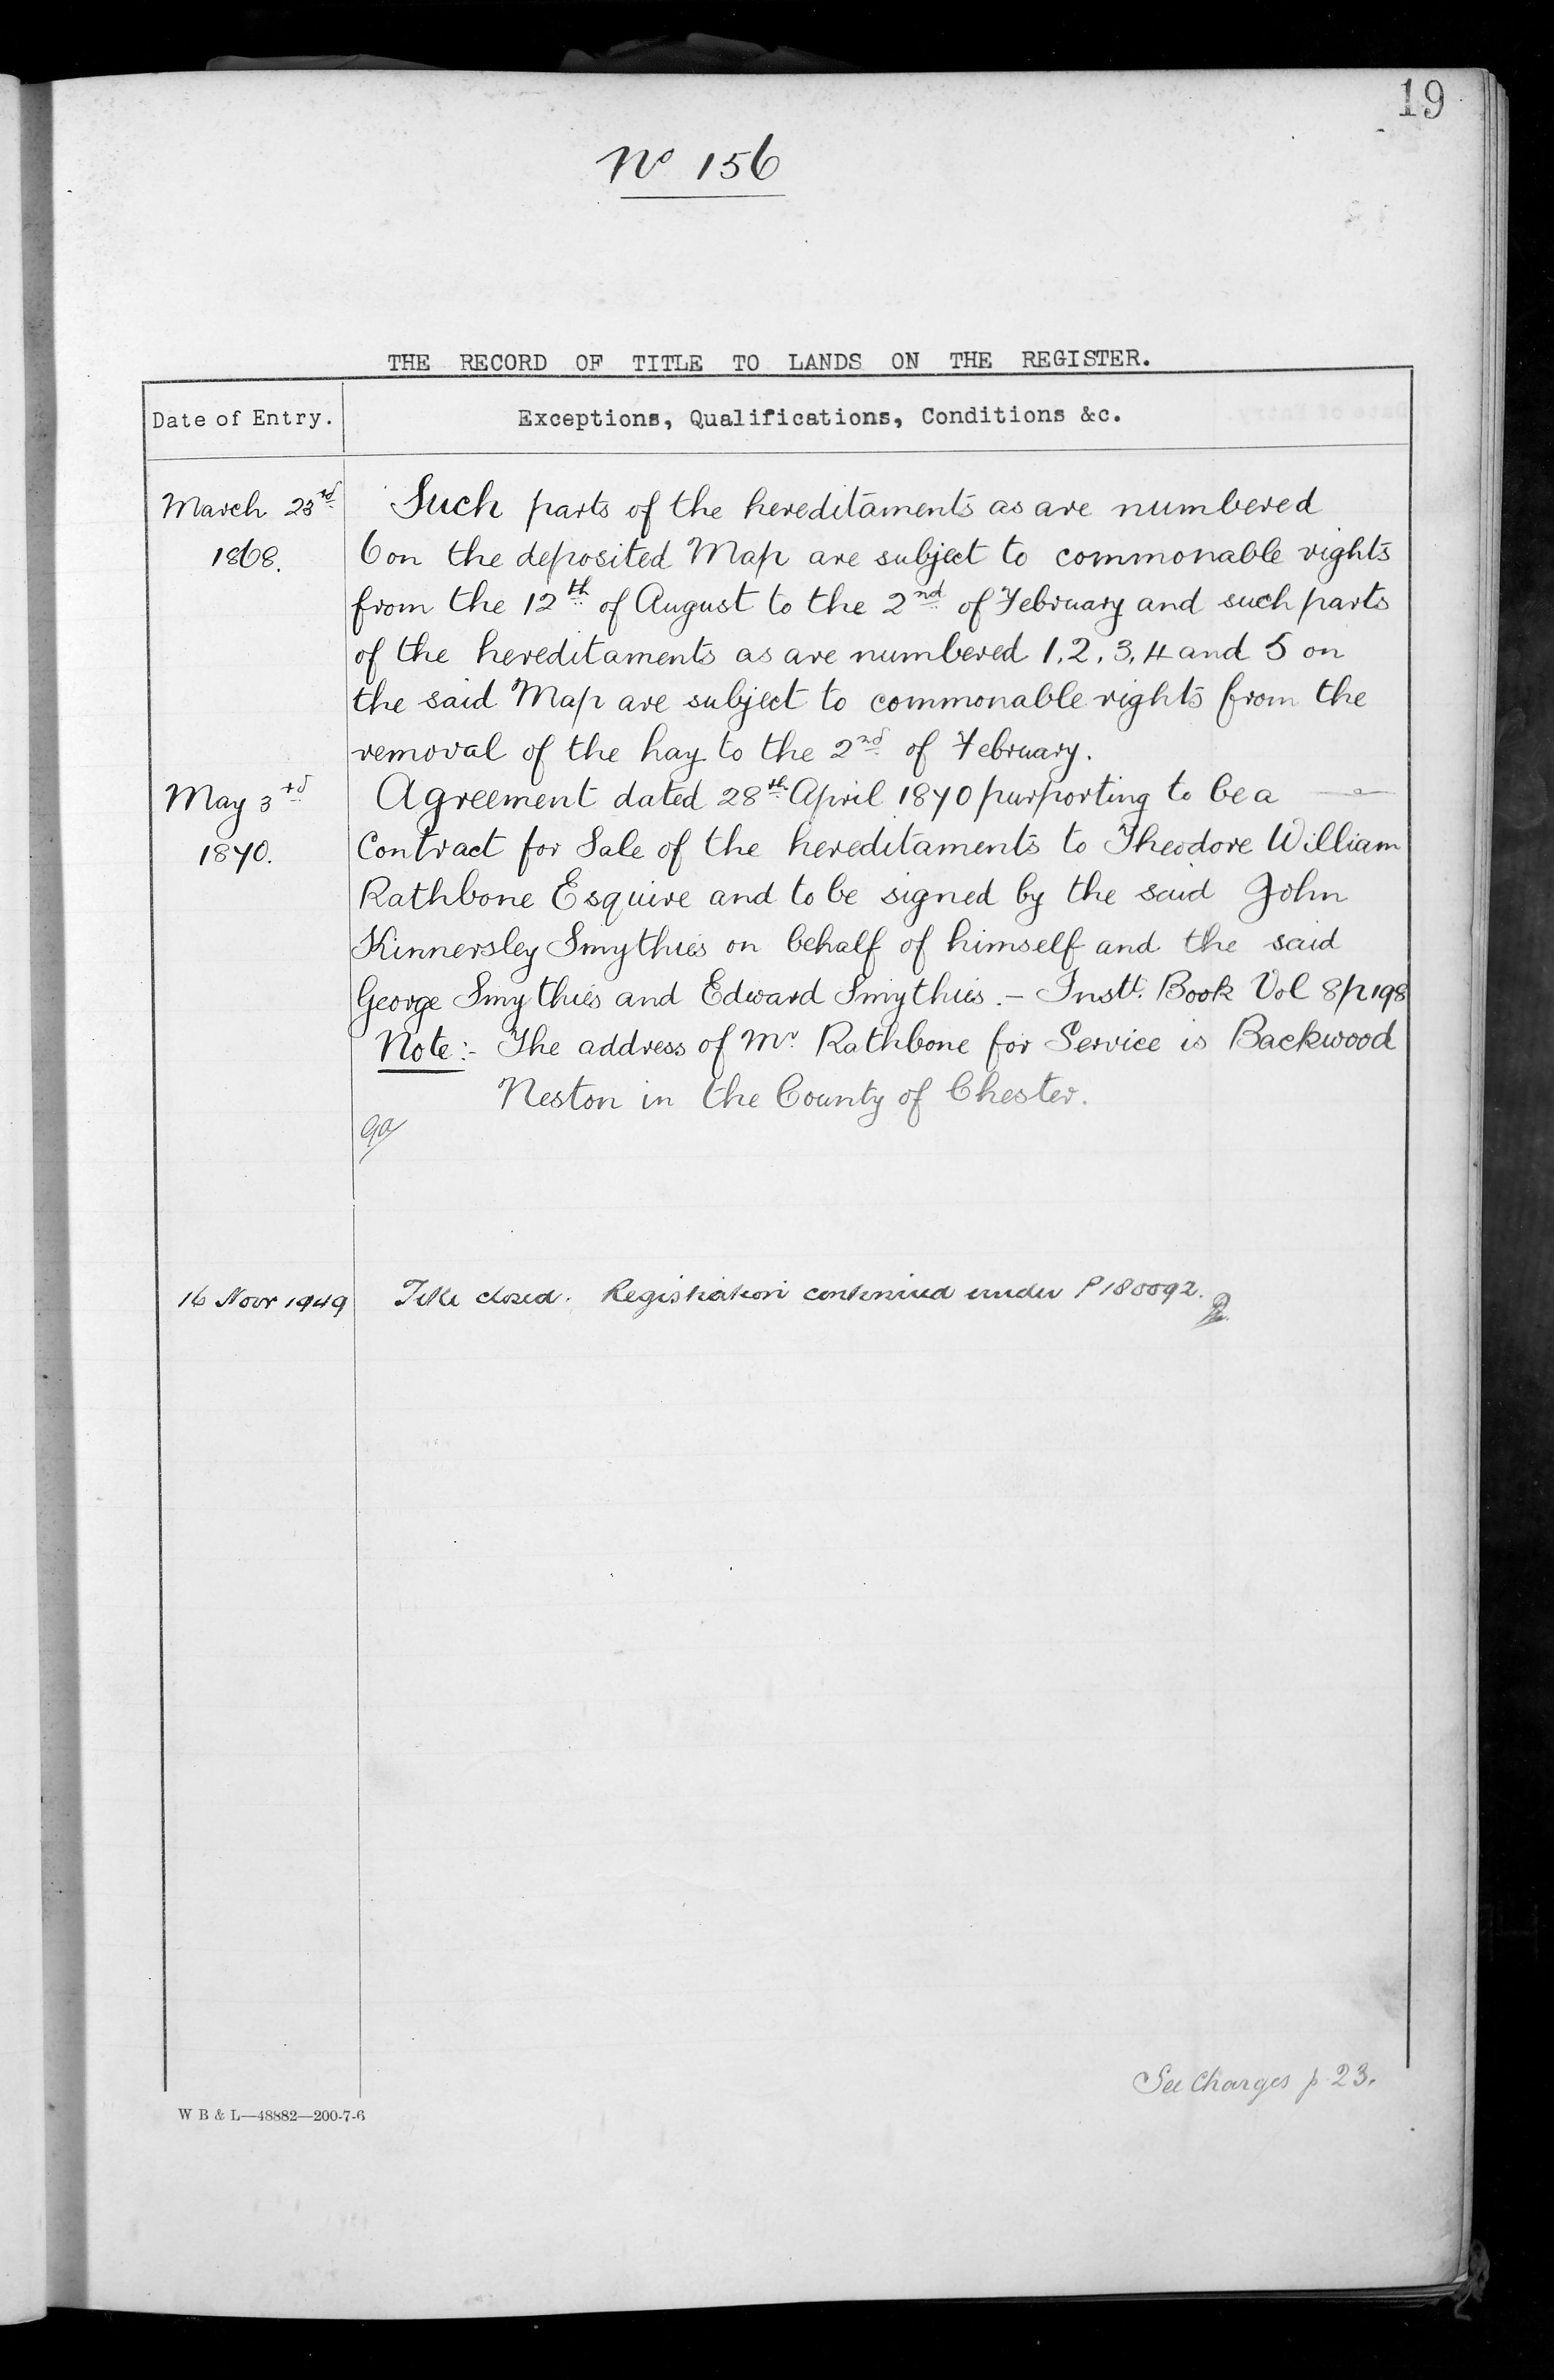 19
No 156
THE RECORD OF TITLE TO LANDS ON THE REGISTER.
Date of Entry. Exceptions, Qualifications, Conditions &c.
March 23rd Such parts of the hereditaments as are numbered
1868. 6 on the deposited Map are subject to commonable rights
from the 12th of August to the 2nd of February and such parts
of the hereditaments as are numbered 1, 2, 3, 4 and 5 on
the said Map are subject to commonable rights from the
removal of the hay to the 2nd of February.
May 3rd Agreement dated 28th April 1870 purporting to be a
1870. Contract for Sale of the hereditaments to Theodore William
Rathbone Esquire and to be signed by the said John
Kinnersley Smythies on behalf of himself and the said
George Smythies and Edward Smythies. - Instt. Book Vol 8 p 198
Note:- The address of Mr Rathbone for Service is Backwood
Neston in the County of Chester.
16 Novr 1949 Title closed. Registration continued under P180092.
See Charges p. 23.
W B & L—48882—200-7-6